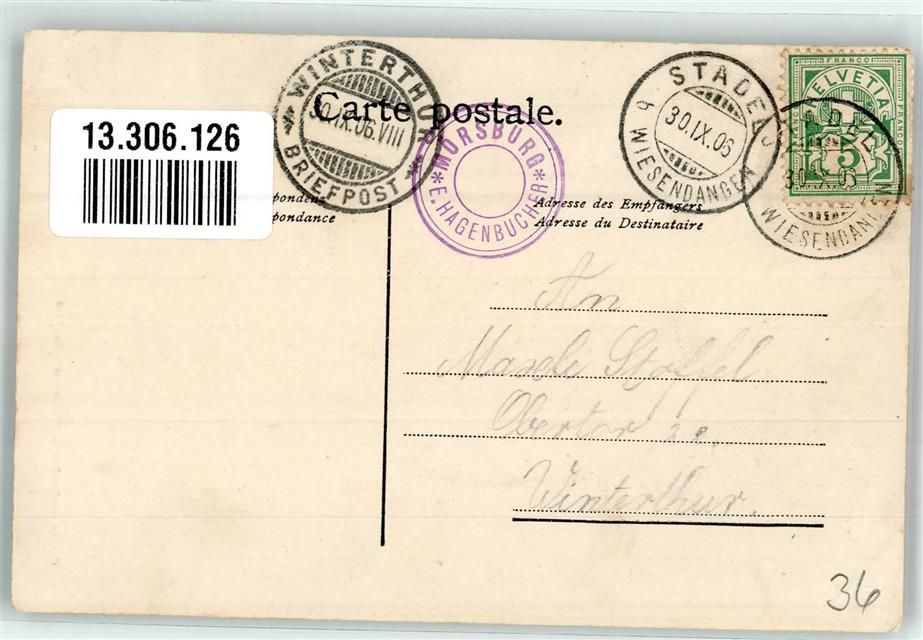 13.306.126
WINTERTHUR
30.IX.06.VIII
BRIEFPOST
Carte postale.
MÖRSBURG
E. HAGENBUCHER
STADEL
30.IX.06
b WIESENDANGEN
FRANCO
HELVETIA
5
FRANCO
STADEL
30.IX.06
WIESENDANGEN
pondenz
pondance
Adresse des Empfängers
Adresse du Destinataire
An
Stoffel
Obertor
Winterthur.
36